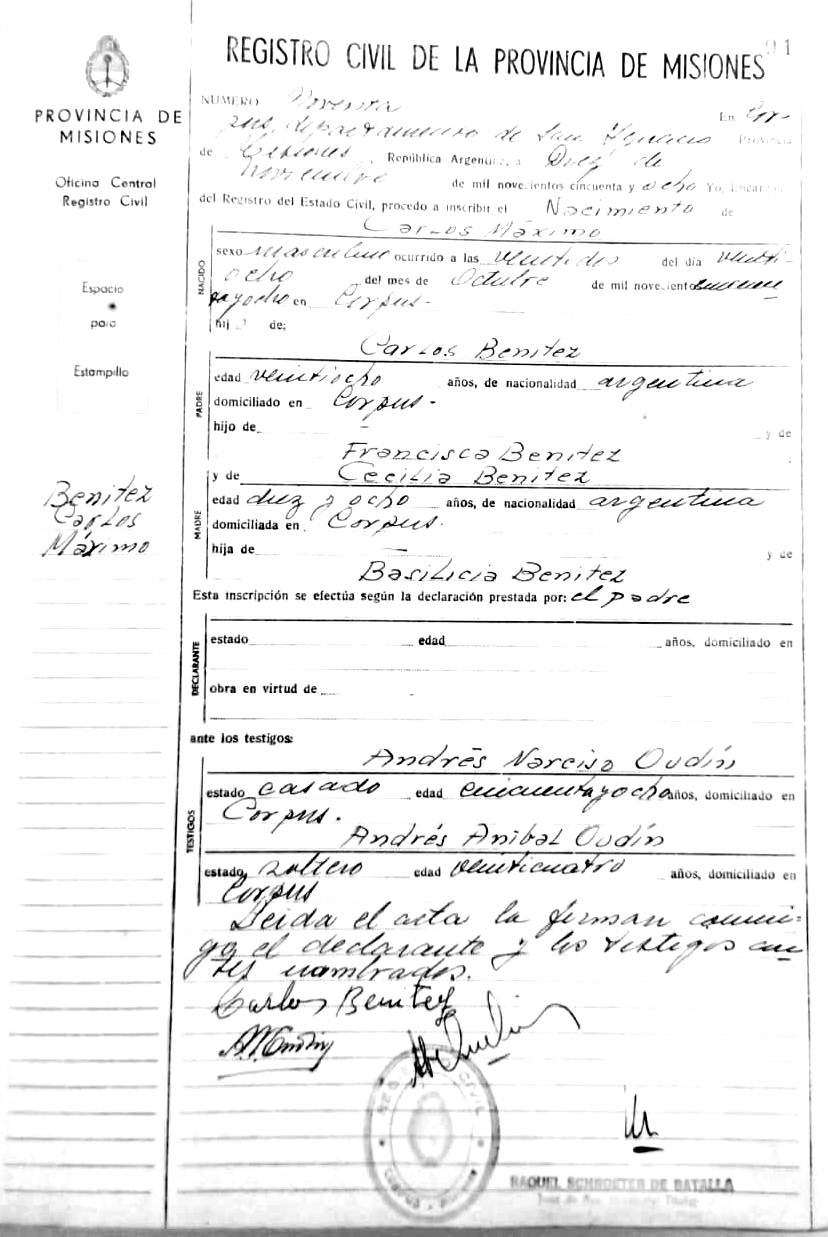 REGISTRO CIVIL DE LA PROVINCIA DE MISIONES
91
PROVINCIA DE
MISIONES
Oficina Central
Registro Civil
Espacio
para
Estampilla
Benitez
Carlos
Máximo
NUMERO Noventa En Cor-
pus, departamento de San Ignacio Provincia
de Misiones, República Argentina, a Diez de
noviembre de mil novecientos cincuenta y ocho Yo, Encargado
del Registro del Estado Civil, procedo a inscribir el Nacimiento de
Carlos Máximo
NACIDO
sexo masculino ocurrido a las veintidos del día veinti-
ocho del mes de Octubre de mil novecientos cincuen
tayocho en Corpus-
hijo de;
Carlos Benitez
PADRE
edad veintiocho años, de nacionalidad argentina
domiciliado en Corpus-
hijo de - y de
Francisca Benitez
y de Cecilia Benitez
MADRE
edad diez y ocho años, de nacionalidad argentina
domiciliada en Corpus.
hija de - y de
Basilicia Benitez
Esta inscripción se efectúa según la declaración prestada por: el padre
DECLARANTE
estado edad años, domiciliado en
obra en virtud de
ante los testigos:
Andrés Narciso Oudín
TESTIGOS
estado casado edad cincuentayocho años, domiciliado en
Corpus.
Andrés Anibal Oudín
estado soltero edad veinticuatro años, domiciliado en
Corpus
Leida el acta la firman conmi-
go el declarante y los testigos an
tes nombrados.
Carlos Benitez
REG CIVIL
RAQUEL SCHROETER DE BATALLA